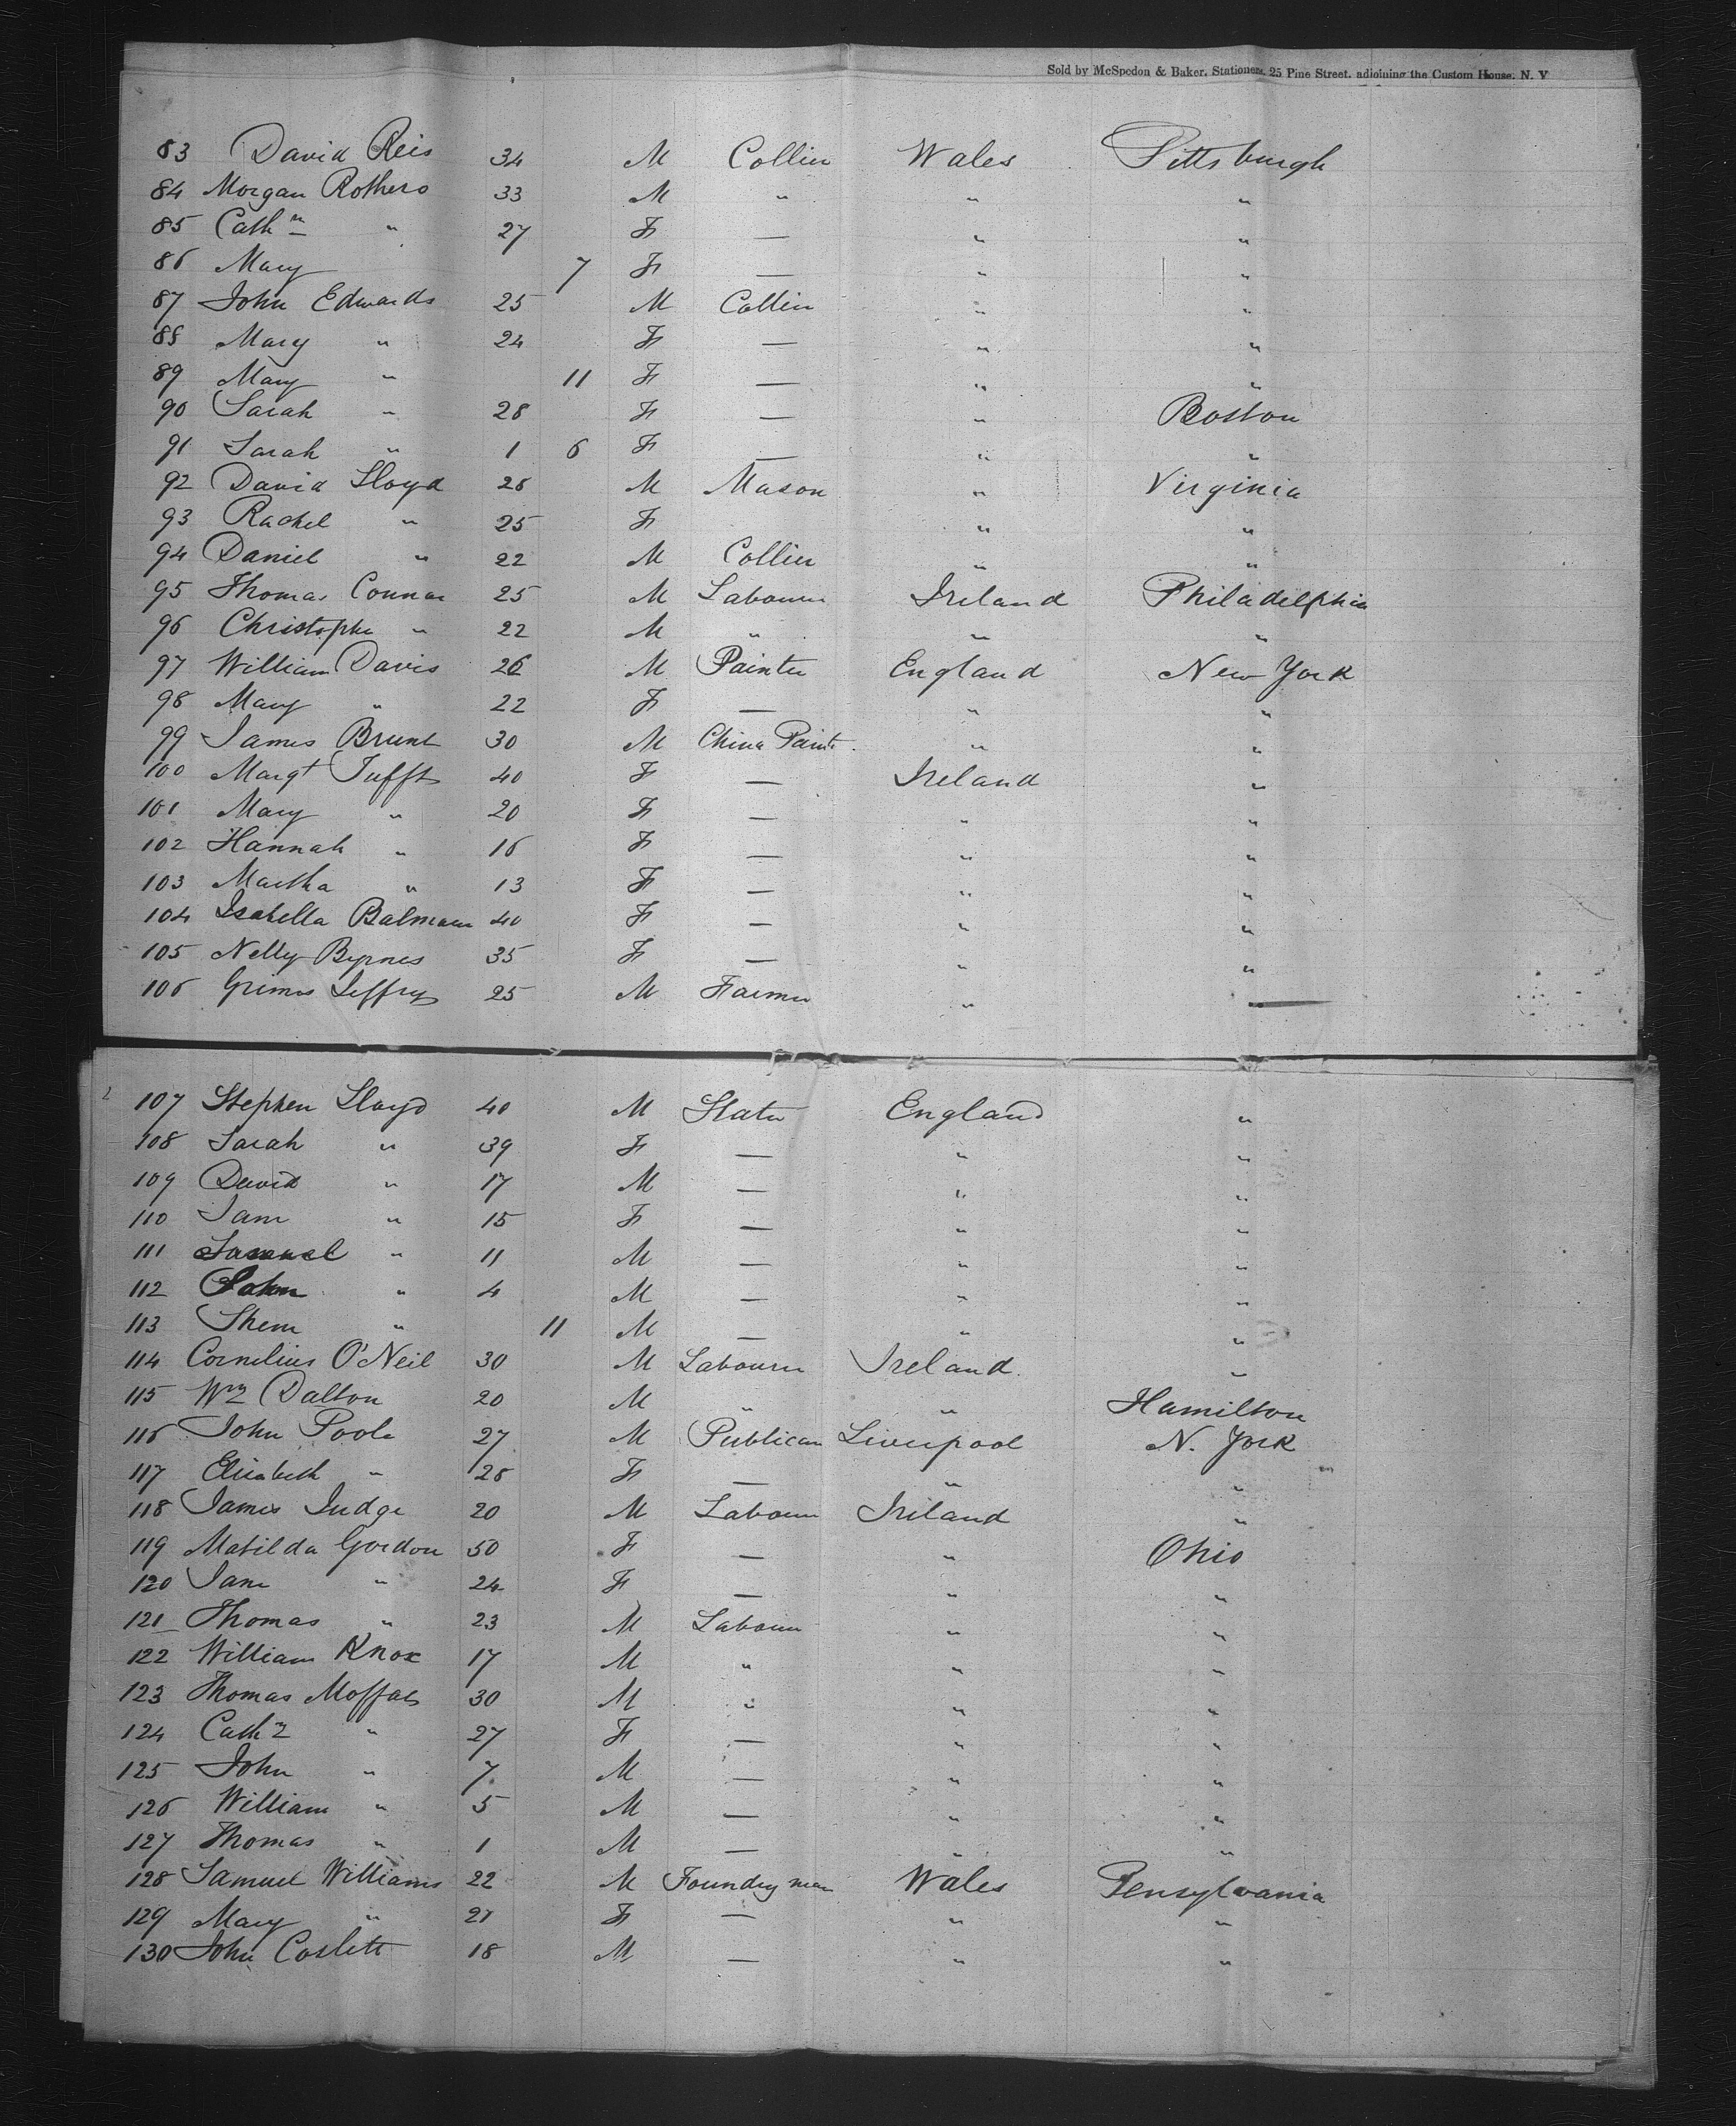 Sold by McSpedon & Baker, Stationers, 25 Pine Street, adjoining the Custom House, N. Y
83 David Reis 34 M Collier Wales Pittsburgh
84 Morgan Rothers 33 M " " "
85 Cathn " 27 F — " "
86 Mary 7 F — " "
87 John Edwards 25 M Collier " "
88 Mary " 24 F — " "
89 Mary " 11 F — " "
90 Sarah " 28 F — " Boston
91 Sarah " 1 6 F — " "
92 David Lloyd 28 M Mason " Virginia
93 Rachel " 25 F " "
94 Daniel " 22 M Collier " "
95 Thomas Connar 25 M Labourer Ireland Philadelphia
96 Christopher " 22 M " " "
97 William Davis 26 M Painter England New York
98 Mary " 22 F — " "
99 James Brunt 30 M China Paint. " "
100 Margt Tufft 40 F — Ireland "
101 Mary " 20 F — " "
102 Hannah " 16 F — " "
103 Martha " 13 F — " "
104 Isabella Balmain 40 F — " "
105 Nelly Byrnes 35 F — " "
106 Grimes Jeffrys 25 M Farmer " "
107 Stephen Lloyd 40 M Slater England "
108 Sarah " 39 F — " "
109 David " 17 M — " "
110 Jane " 15 F — " "
111 Samuel " 11 M — " "
112 John " 4 M — " "
113 Shem " 11 M — " "
114 Cornelius O'Neil 30 M Labourer Ireland "
115 Wm Dalton 20 M " " Hamilton
116 John Poole 27 M Publican Liverpool N. York
117 Elizabeth " 28 F — " "
118 James Judge 20 M Labourer Ireland "
119 Matilda Gordon 50 F — " Ohio
120 Jane " 24 F — " "
121 Thomas " 23 M Labourer " "
122 William Knox 17 M " " "
123 Thomas Moffat 30 M " " "
124 Cathn " 27 F — " "
125 John " 7 M — " "
126 William " 5 M — " "
127 Thomas " 1 M — " "
128 Samuel Williams 22 M Foundry man Wales Pensylvania
129 Mary " 21 F — " "
130 John Coslett 18 M — " "